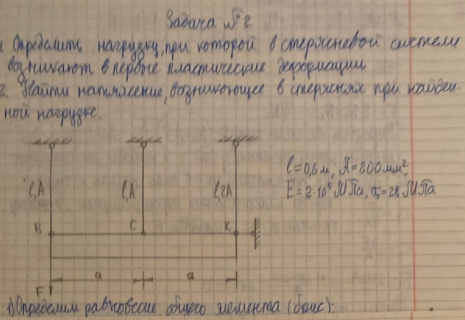 Задача №2
1. Определить нагрузку, при которой в стержневой системе
возникают впервые пластические деформации
2. Найти напряжение, возникающее в стержнях при найден-
ной нагрузке.
l=0,6м, A=200мм²,
l,A l,A l,2A
B C K
a a
F
1) Определим равновесие общего элемента (брус):